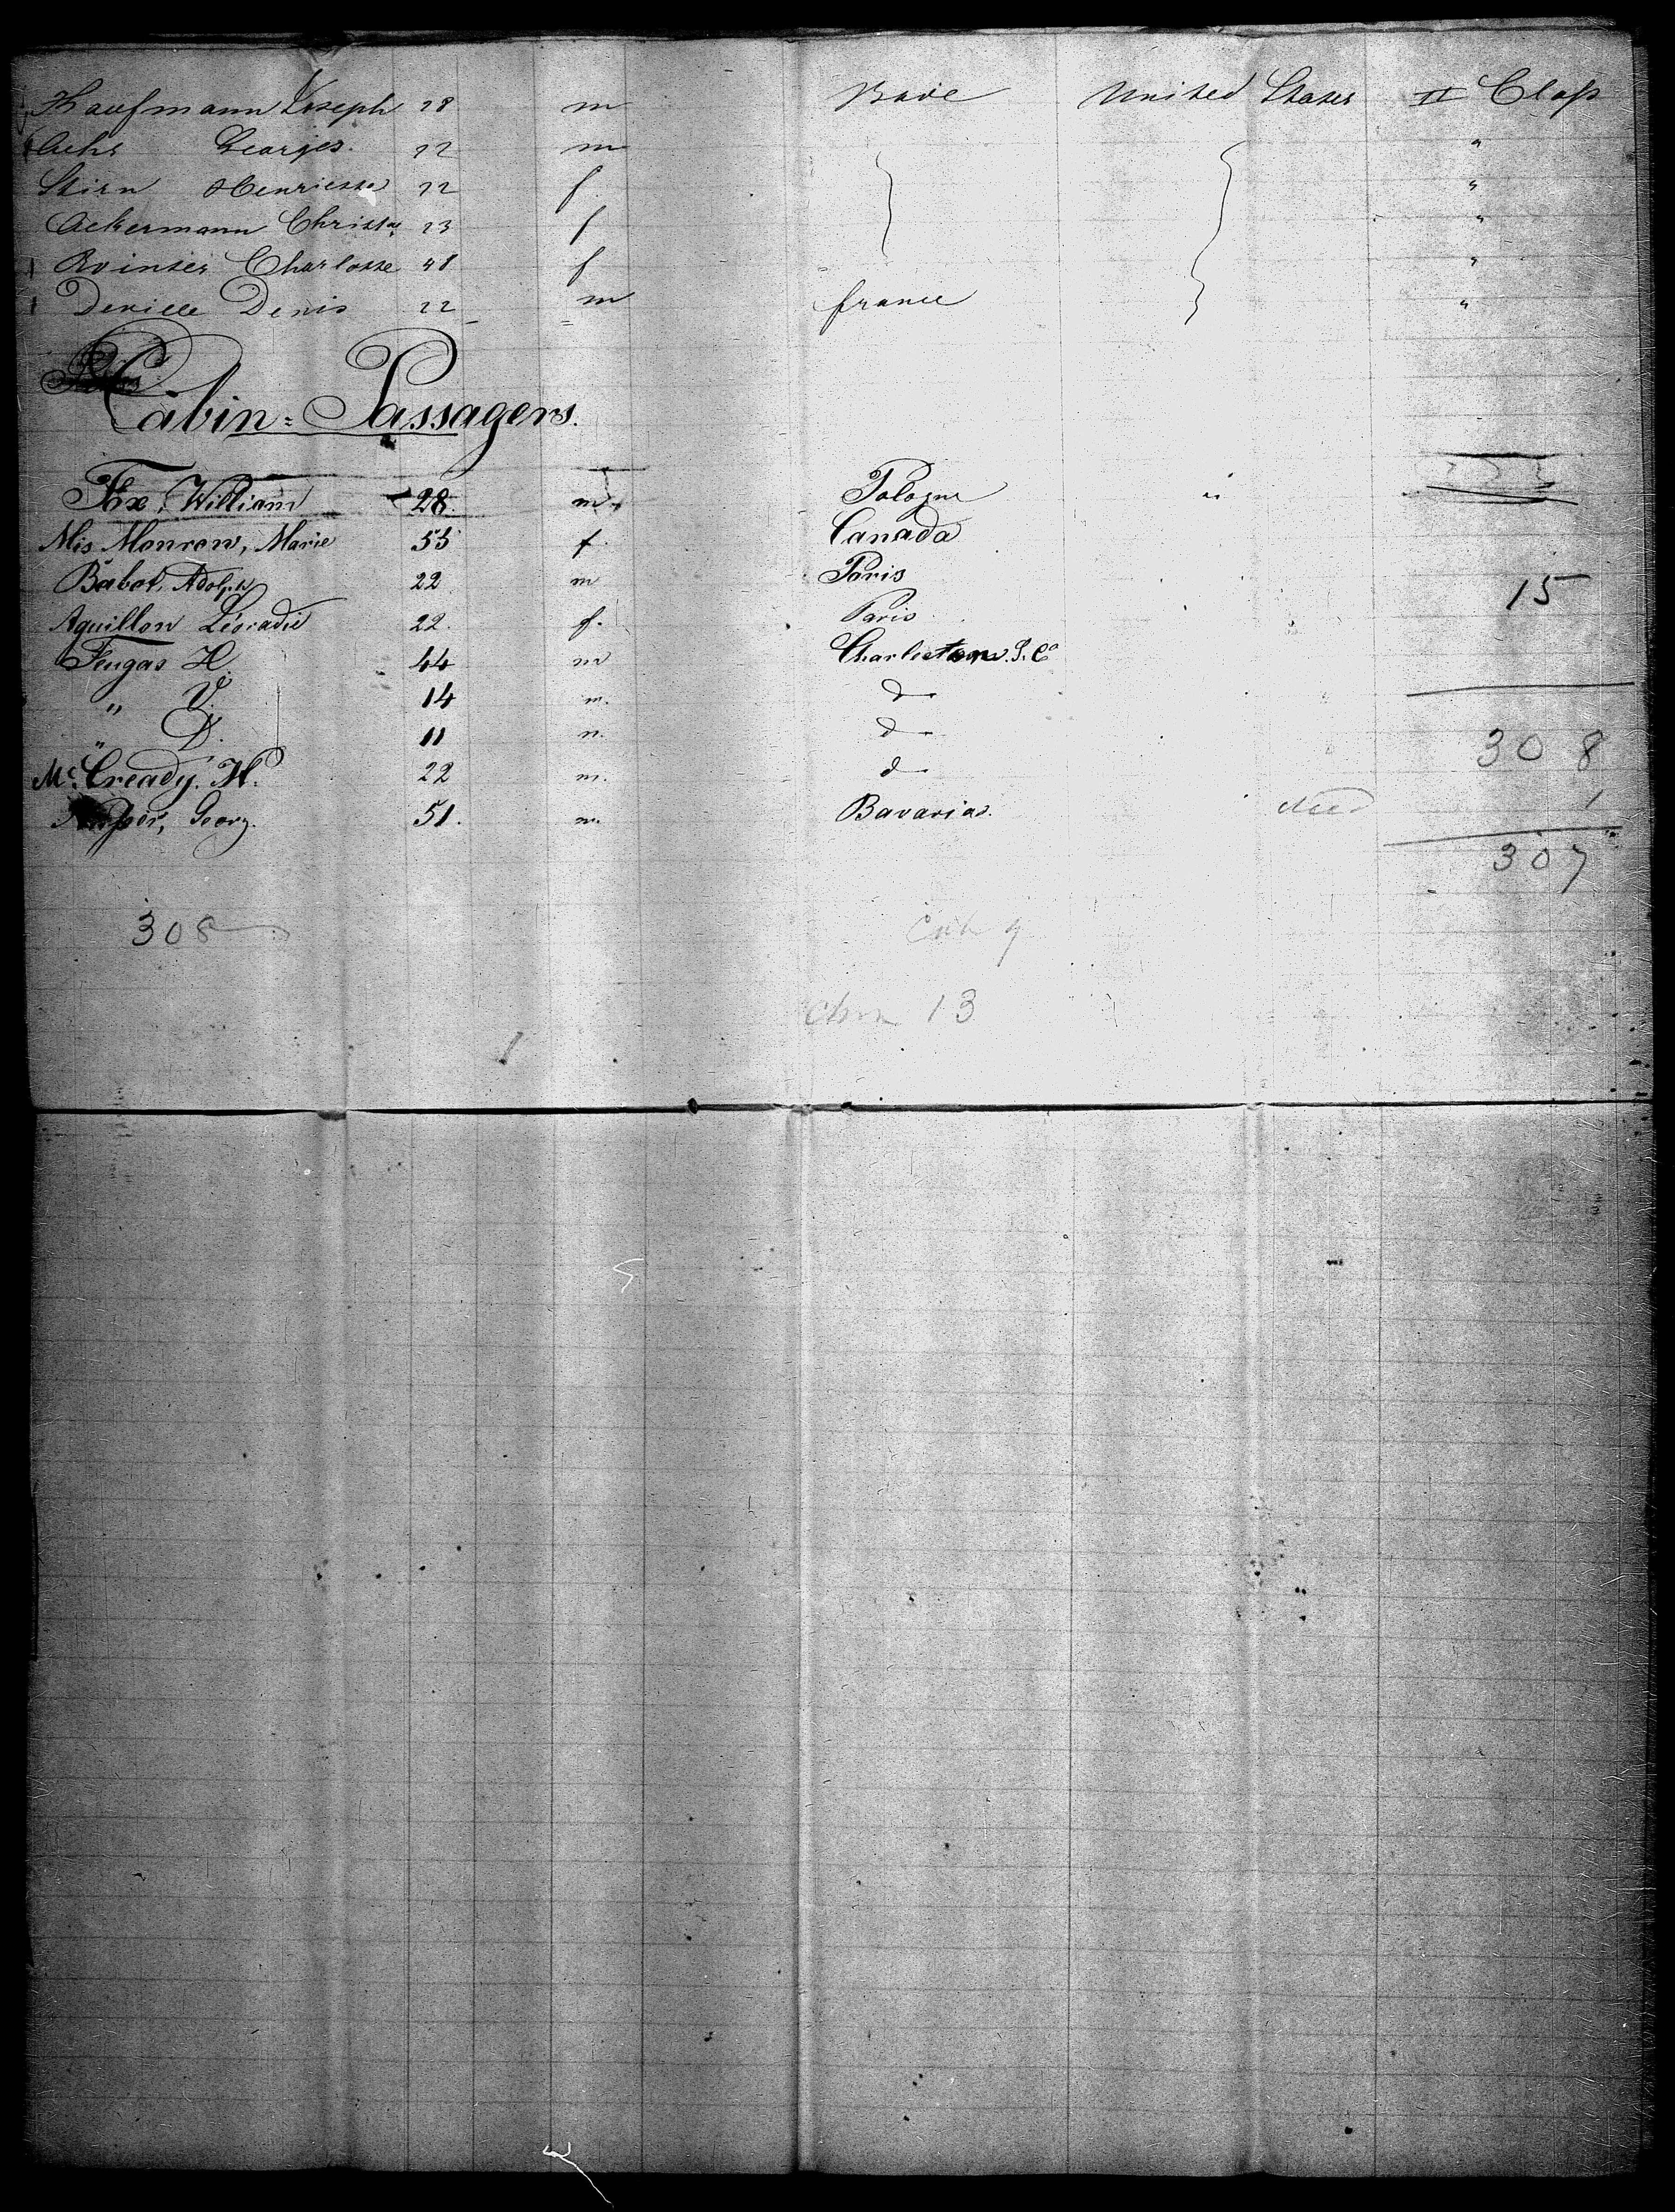 Kaufmann Joseph 28 m Bade United States II Class
Achs Georges. 22 m "
Stirn Henriette 22 f. "
Ackermann Christ 23 f "
Winter Charlotte 48 f "
Denille Denis 22 m france "
Cabin=Passagers.
Fox, William 28. m. Pologne "
Mis Monrow, Marie 55 f. Canada
Babot, Adolph 22 m Paris 15
Aguillon Léocadie 22. f. Paris
Feugas H. 44 m Charleston. S. Co
" V. 14 m. do
" D. 11 m. do 308
Mc. Cready. H. 22 m. do
Georg. 51. m. Bavaria. 1
307
308 Cab 9
13